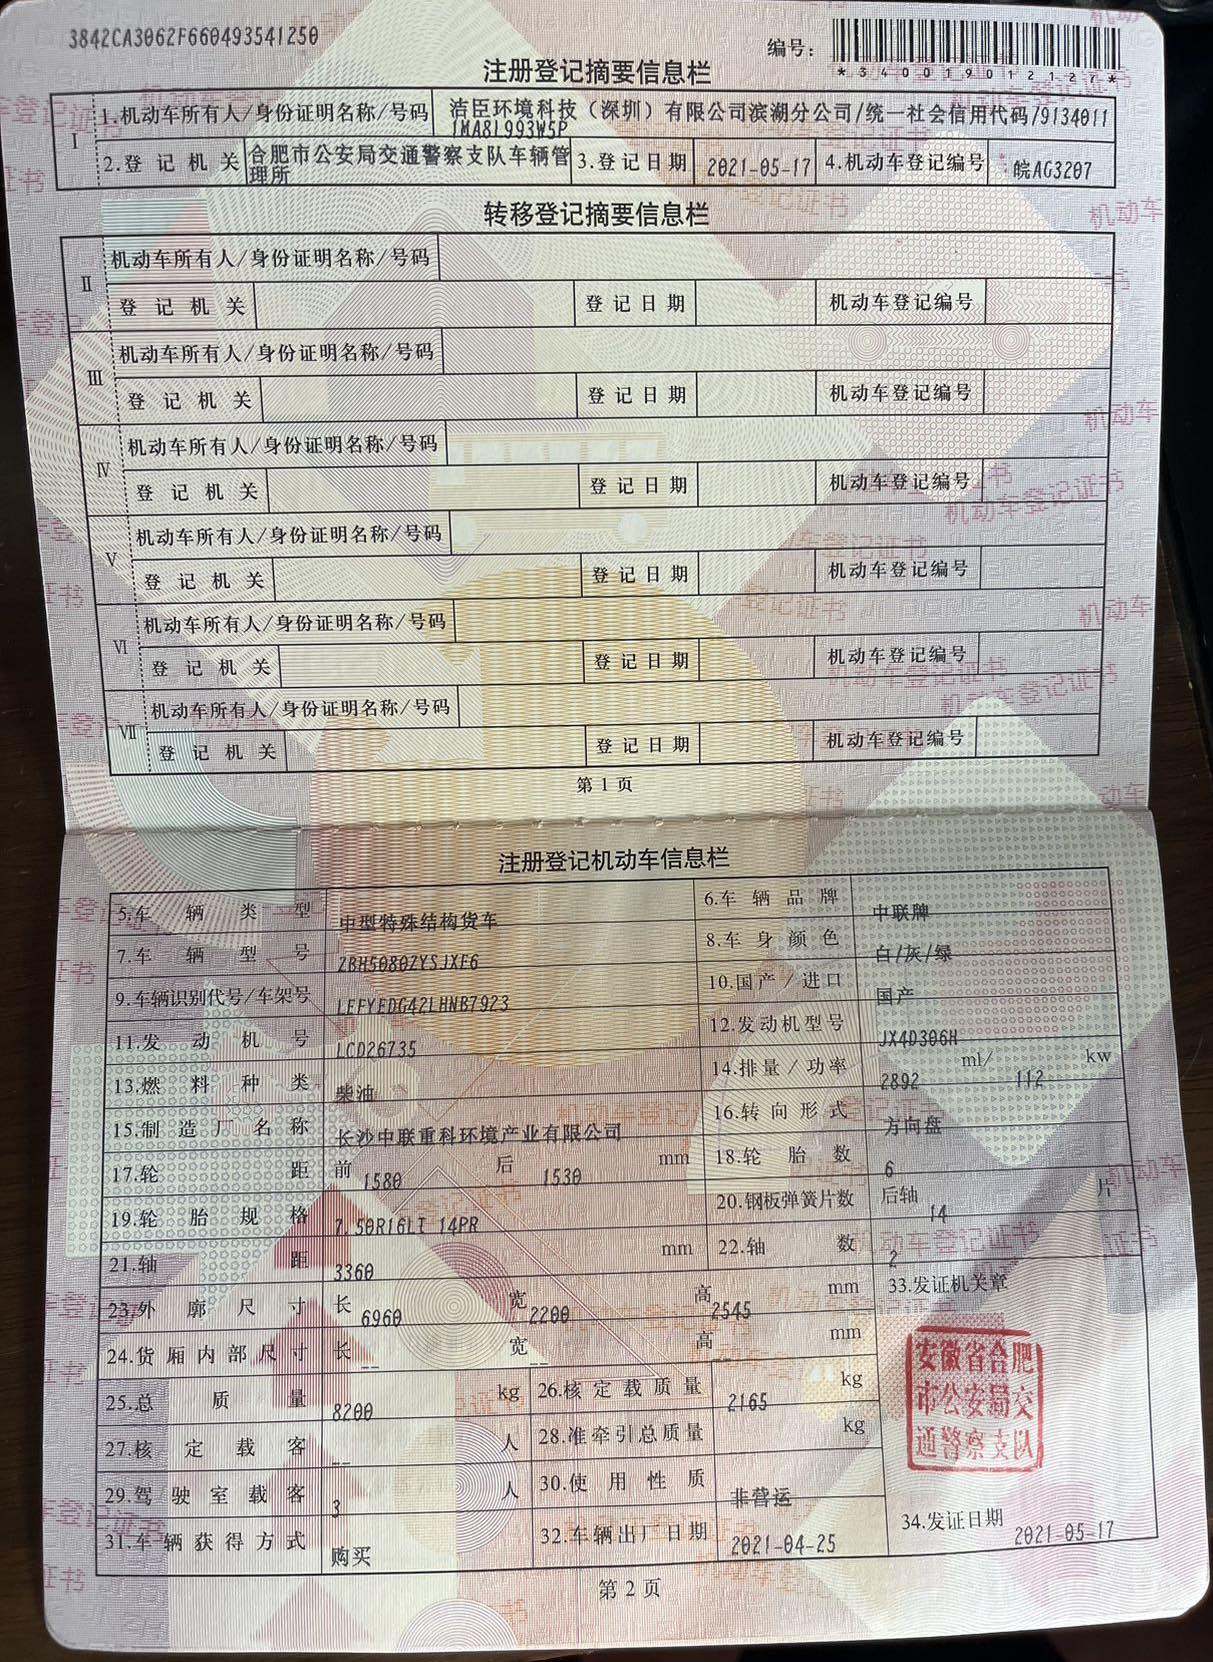 3842CA3062F660493541250
编号：
*340019012127*
注册登记摘要信息栏
Ⅰ
1.机动车所有人/身份证明名称/号码 洁臣环境科技（深圳）有限公司滨湖分公司/统一社会信用代码/9134011
1MA8L993W5P
2.登记机关 合肥市公安局交通警察支队车辆管理所 3.登记日期 2021-05-17 4.机动车登记编号 皖AG3207
转移登记摘要信息栏
Ⅱ
机动车所有人/身份证明名称/号码
登记机关 登记日期 机动车登记编号
Ⅲ
机动车所有人/身份证明名称/号码
登记机关 登记日期 机动车登记编号
Ⅳ
机动车所有人/身份证明名称/号码
登记机关 登记日期 机动车登记编号
Ⅴ
机动车所有人/身份证明名称/号码
登记机关 登记日期 机动车登记编号
Ⅵ
机动车所有人/身份证明名称/号码
登记机关 登记日期 机动车登记编号
Ⅶ
机动车所有人/身份证明名称/号码
登记机关 登记日期 机动车登记编号
第 1 页
注册登记机动车信息栏
5.车辆类型 中型特殊结构货车 6.车辆品牌 中联牌
7.车辆型号 ZBH5080ZYSJXE6 8.车身颜色 白/灰/绿
9.车辆识别代号/车架号 LEFYEDG42LHNB7923 10.国产/进口 国产
11.发动机号 LCD26735 12.发动机型号 JX4D306H
13.燃料种类 柴油 14.排量/功率 2892 ml/ 112 kw
15.制造厂名称 长沙中联重科环境产业有限公司 16.转向形式 方向盘
17.轮距 前 1580 后 1530 mm 18.轮胎数 6
19.轮胎规格 7.50R16LT 14PR 20.钢板弹簧片数 后轴 14 片
21.轴距 3360 mm 22.轴数 2
23.外廓尺寸 长 6960 宽 2200 高 2545 mm 33.发证机关章
24.货厢内部尺寸 长 -- 宽 -- 高 -- mm
25.总质量 8200 kg 26.核定载质量 2165 kg
27.核定载客 -- 人 28.准牵引总质量 kg
29.驾驶室载客 3 人 30.使用性质 非营运
31.车辆获得方式 购买 32.车辆出厂日期 2021-04-25 34.发证日期 2021-05-17
安徽省合肥
市公安局交
通警察支队
第 2 页